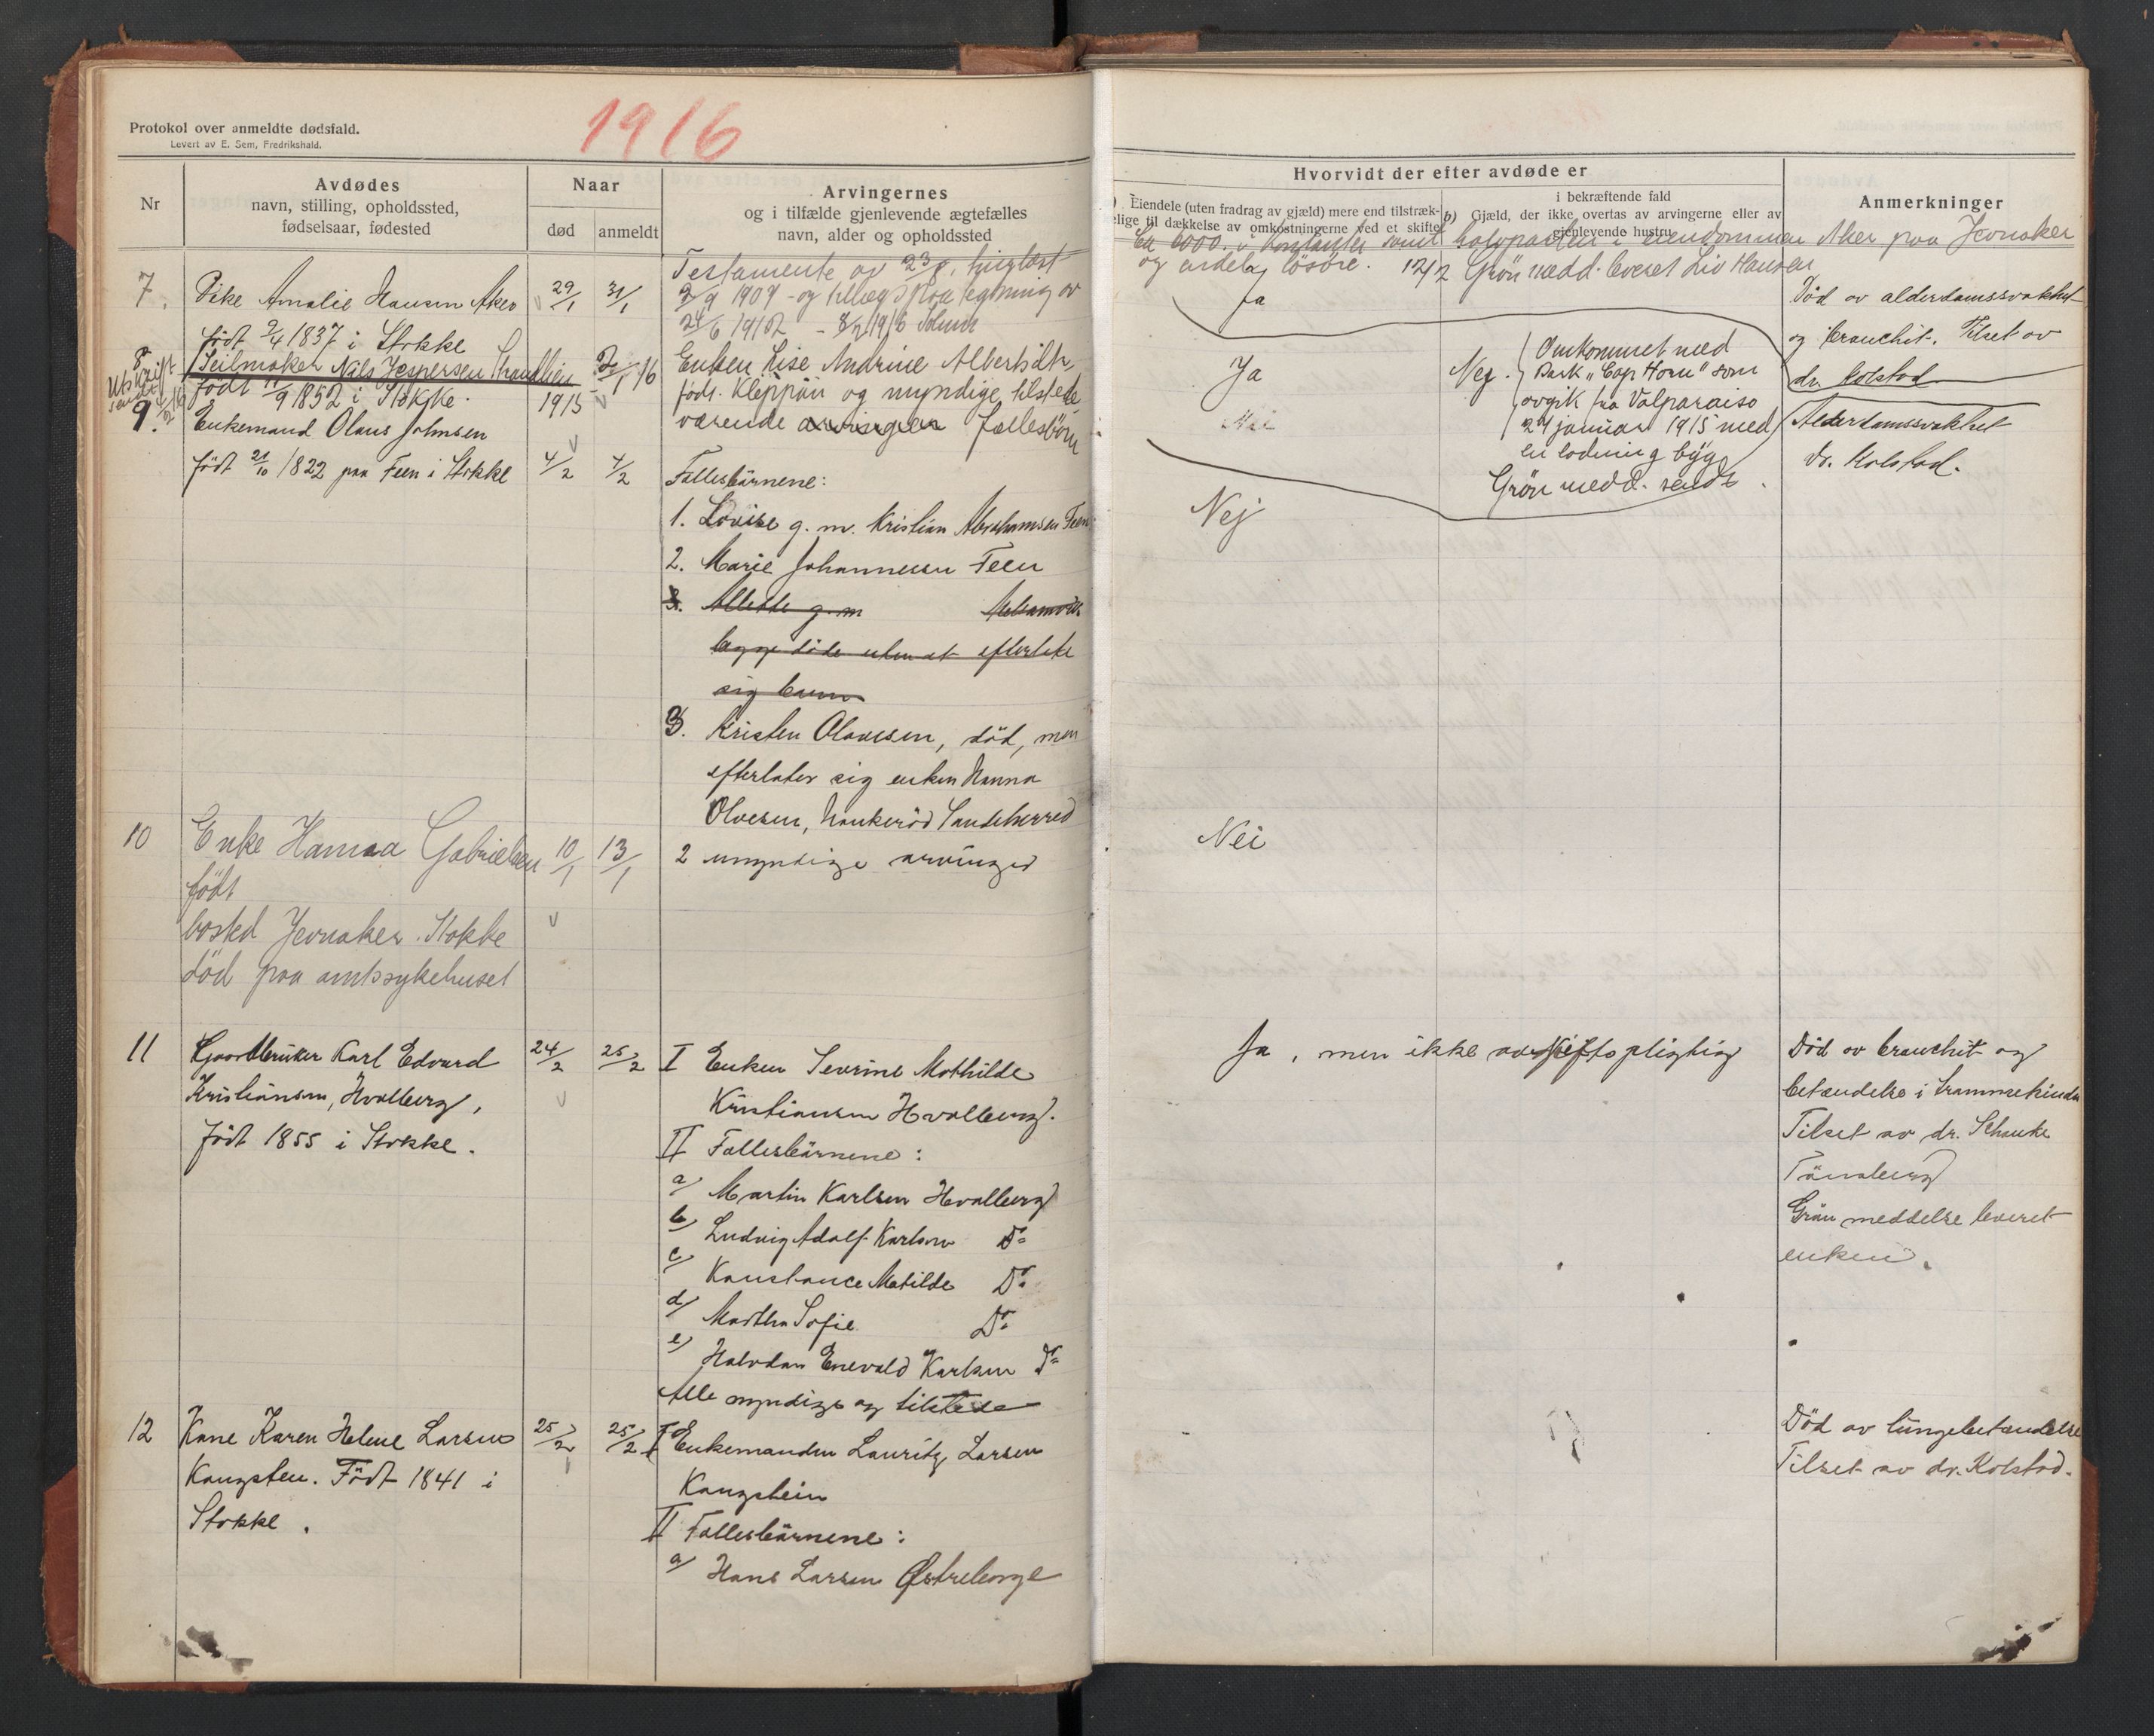 1916
Protokol over anmeldte dødsfald.
Levert av E. Sem, Fredrikshald.
Nr
Avdødes
navn, stilling, opholdssted,
fødselsaar, fødested
Naar
død
anmeldt
Arvingernes
og i tilfælde gjenlevende ægtefælles
navn, alder og opholdssted
7.
Pike Amalie Hansen Aker
29/1
31/1
født 9/4 1837 i Stokke
Testamente av
3/9 1909 - og tillægspaategning av
24/6 1912 - 8/2 1916
8
Utskrift
sendt
Seilmaker Nils Jespersen
født 11/9 1852 i Stokke.
1915
Enken Lise Andrine Albertsdtr.
født Kleppan og myndige tilstede
værende arvinger fællesbørn
9.
Enkemand Olaus Johnsen
født 21/10 1822 paa Feen i Stokke
4/2
4/2
Fællesbårnene:
1. Lovise g. m. Kristian Abrahamsen Feen
2. Marie Johannesen Feen
3. Allette g. m
begge døde uten at efterlate
sig barn
3. Kristen Olavesen, død, men
efterlater sig enken Hanna
Olvesen, Haukerød Sandeherred
10
Enke Hanna Gabrielsen
10/1
13/1
2 umyndige arvinger
født
bosted Jevnaker. Stokke
død paa amtssykehuset
11
Gaardbruker Karl Edvard
Kristiansen, Hvalberg,
født 1855 i Stokke.
24/2
25/2
I Enken Severine Mathilde
Kristiansen Hvalberg.
II Fællesbårnene:
a/ Martin Karlsen Hvalberg
b/ Ludvig Adolf Karlsen Do
c/ Konstance Matilde Do
d/ Martha Sofie Do
e/ Halvdan Enevald Karlsen Do
Alle myndige og tilstede
12
Kone Karen Helene Larsen
Kangsten. Født 1841 i
Stokke.
25/2
25/2
I Enkemanden Lauritz Larsen
Kangstein
II Fællesbårnene:
a/ Hans Larsen Østreborge
Hvorvidt der efter avdøde er
Eiendele (uten fradrag av gjæld) mere end tilstræk-
elige til dækkelse av omkostningerne ved et skifte
i bekræftende fald
b) Gjæld, der ikke overtas av arvingerne eller av
gjenlevende hustru
Anmerkninger
Ca 6000. i kontanter samt halvparten i eiendommen Aker paa Jevnaker
og endel løsøre. 12/2 Grøn medd. leveret Liv Hansen
Ja
Død av alderdomssvakhet
og bronchit. Tilset av
dr. Kolstad
Ja
Nej.
Omkommet med
Bark "Cap Horn" som
avgik fra Valparaiso
29 januar 1915 med
en ladning byg
Grøn medd. sendt.
Nei
Alderdomssvakhet
dr. Kolstad.
Nej
Nei
Ja, men ikke arveavgiftspligtig
Død av bronchit og
betændelse i
Tilset av dr.
Tønsberg
Grøn meddelse leveret
enken.
Død av lungebetændelse
Tilset av dr. Kolstad.